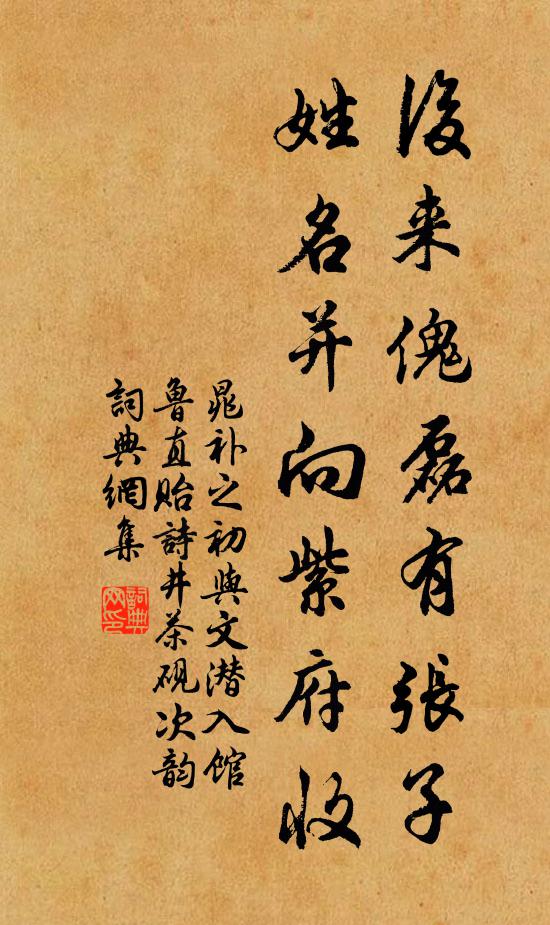 後来傀磊有張子
姓名并向紫府收
晁补之初與文潜入馆
魯直貽詩井茶硯次韵
詞典網集
詞典
网印